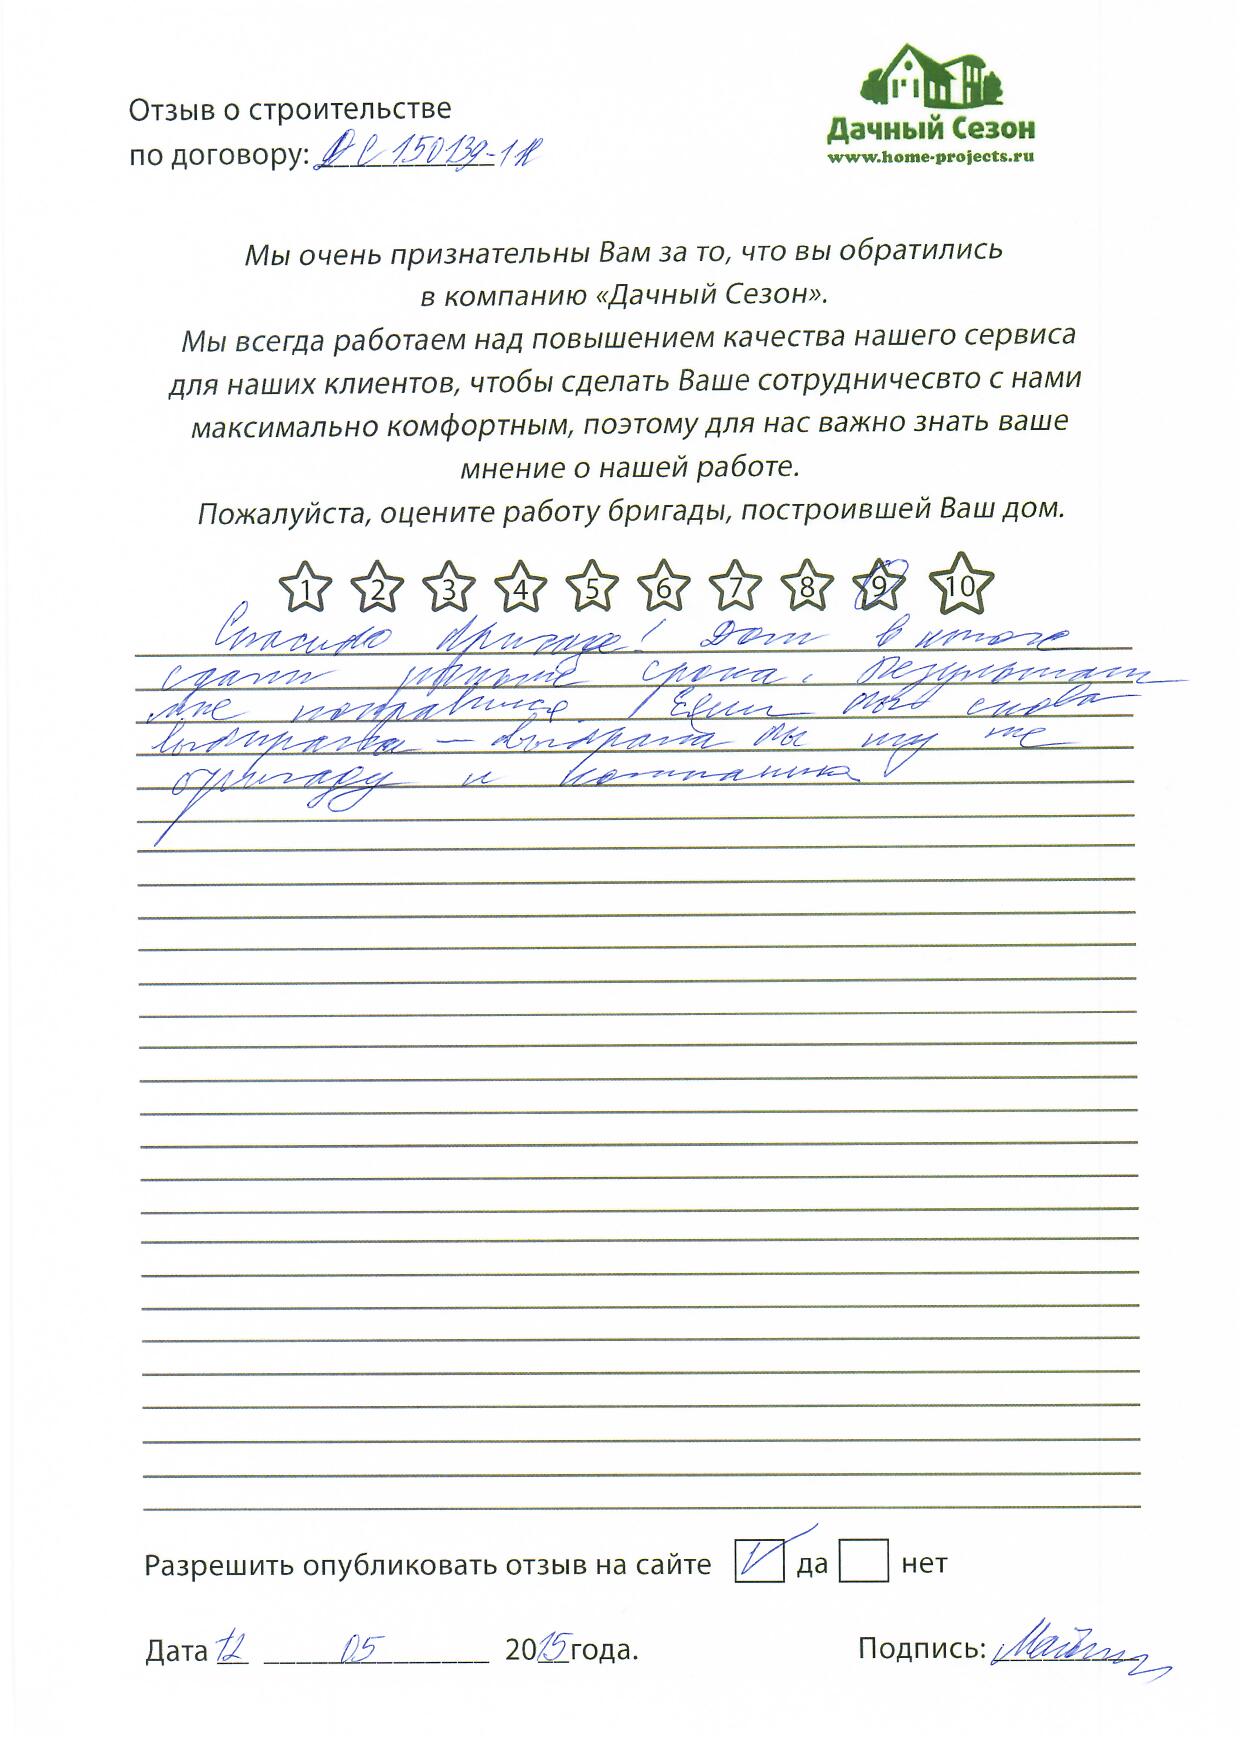 Дачный Сезон
www.home-projects.ru
Отзыв о строительстве
по договору: ДС 150139-1К
Мы очень признательны Вам за то, что вы обратились
в компанию «Дачный Сезон».
Мы всегда работаем над повышением качества нашего сервиса
для наших клиентов, чтобы сделать Ваше сотрудничесвто с нами
максимально комфортным, поэтому для нас важно знать ваше
мнение о нашей работе.
Пожалуйста, оцените работу бригады, построившей Ваш дом.
1 2 3 4 5 6 7 8 9 10
Спасибо бригаде! Дом в итоге
сдали раньше срока. Результат
мне понравился. Если бы снова
выбирала – выбрала бы ту же
бригаду и
Разрешить опубликовать отзыв на сайте V да нет
Дата 12 05 2015 года. Подпись: